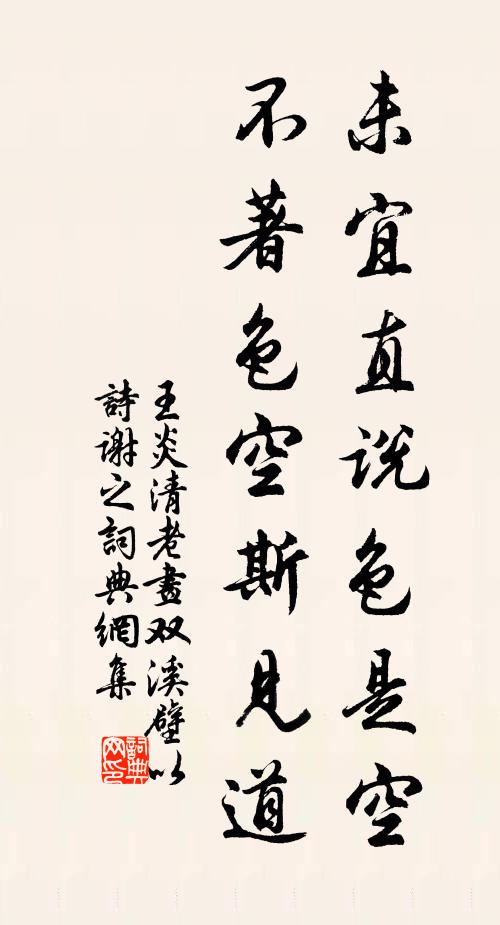 未宜直说色是空
不著色空斯見道
王炎清老畫双溪壁以
詩谢之詞典網集
詞典